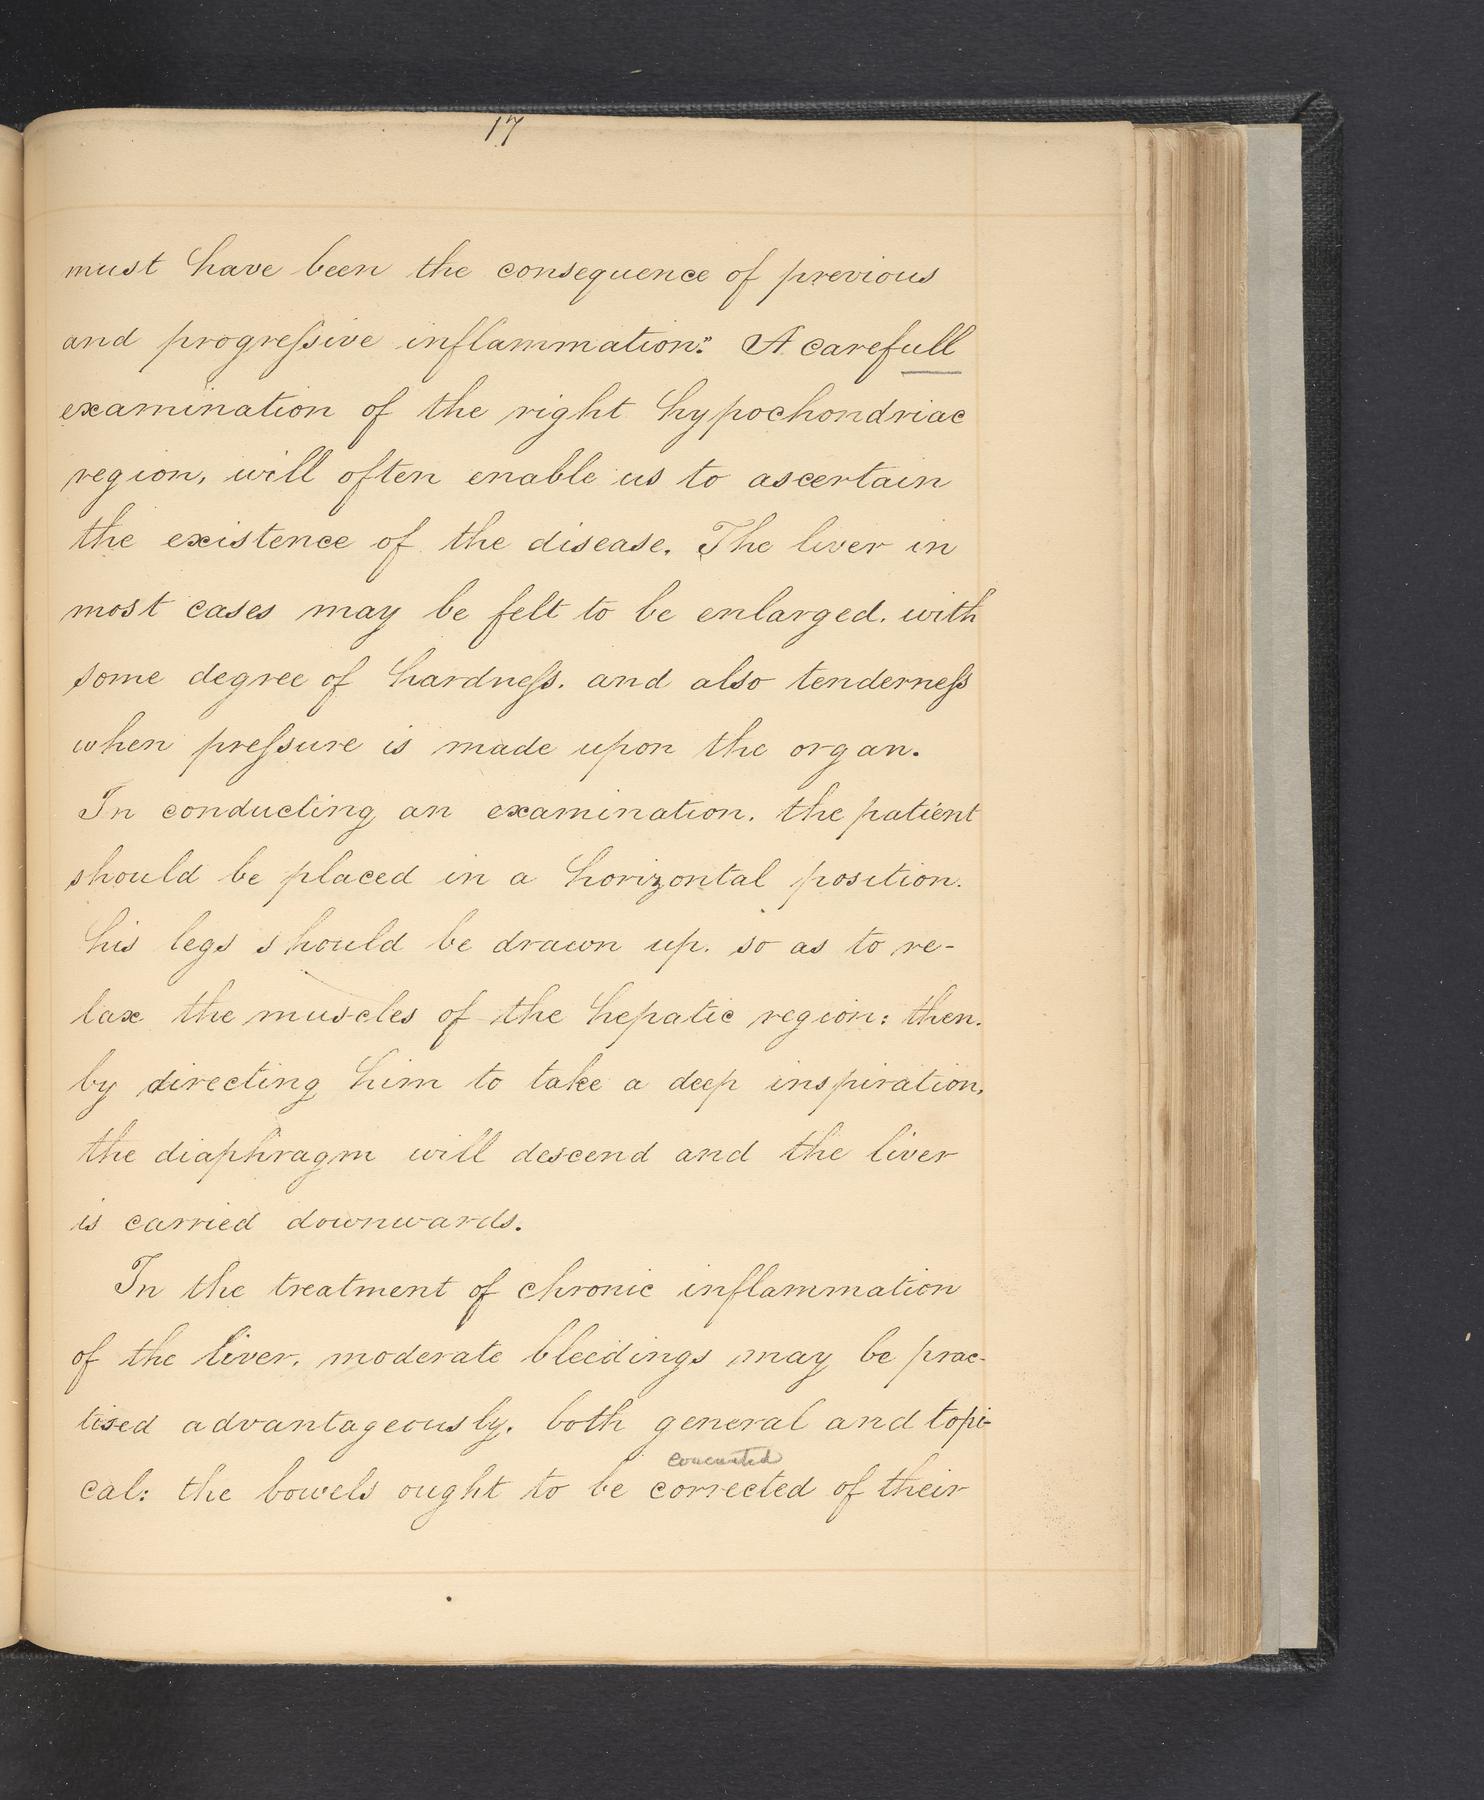 17
must have been the consequence of previous
and progreſsive inflammation." A carefull
examination of the right hypochondriac
region, will often enable us to ascertain
the existence of the disease. The liver in
most cases may be felt to be enlarged. with
some degree of hardneſs. and also tenderneſs
when preſsure is made upon the organ.
In conducting an examination. the patient
should be placed in a horizontal position.
his legs should be drawn up. so as to re-
lax the muscles of the hepatic region: then.
by directing him to take a deep inspiration,
the diaphragm will descend and the liver
is carried downwards.
In the treatment of chronic inflammation
of the liver. moderate bleedings may be prac-
tised advantageously. both general and topi-
evacuated
cal: the bowels ought to be corrected of their